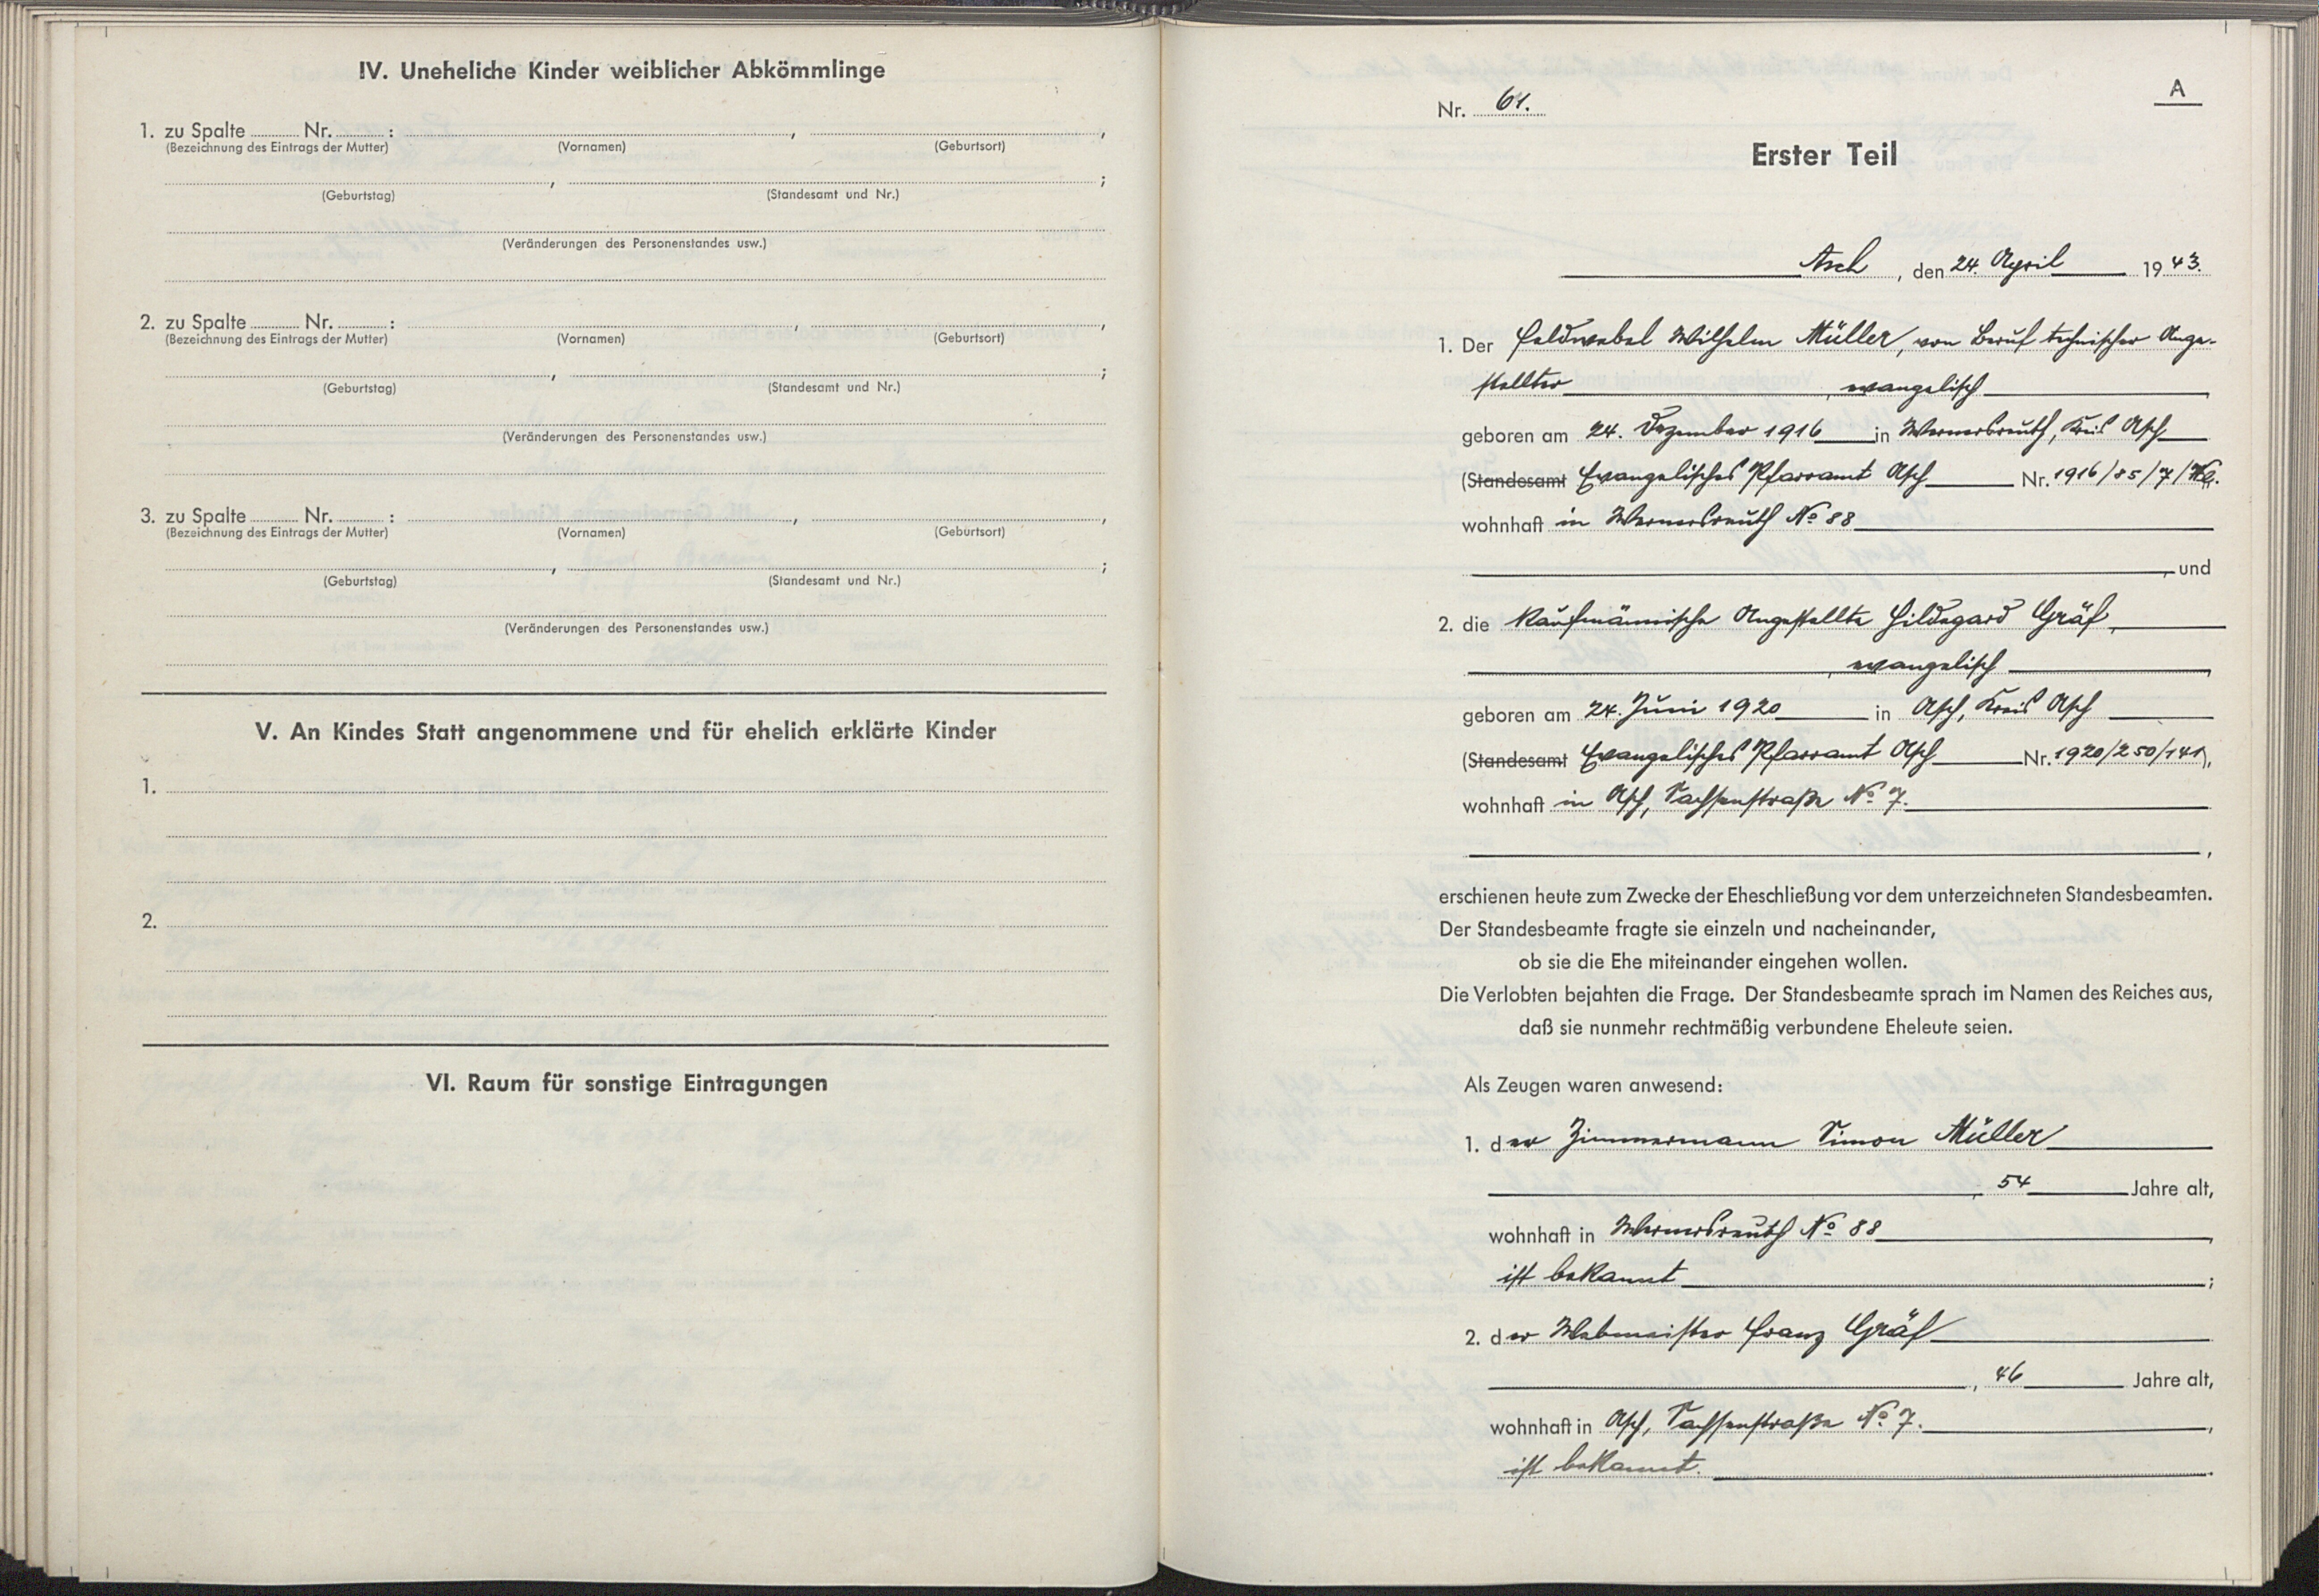 IV. Uneheliche Kinder weiblicher Abkömmlinge
1. zu Spalte ........ Nr. ........ : ........ , ........ ,
(Bezeichnung des Eintrags der Mutter) (Vornamen) (Geburtsort)
........ , ........ ;
(Geburtstag) (Standesamt und Nr.)
(Veränderungen des Personenstandes usw.)
2. zu Spalte ........ Nr. ........ : ........ , ........ ,
(Bezeichnung des Eintrags der Mutter) (Vornamen) (Geburtsort)
........ , ........ ;
(Geburtstag) (Standesamt und Nr.)
(Veränderungen des Personenstandes usw.)
3. zu Spalte ........ Nr. ........ : ........ , ........ ,
(Bezeichnung des Eintrags der Mutter) (Vornamen) (Geburtsort)
........ , ........ ;
(Geburtstag) (Standesamt und Nr.)
(Veränderungen des Personenstandes usw.)
V. An Kindes Statt angenommene und für ehelich erklärte Kinder
1.
2.
VI. Raum für sonstige Eintragungen
A
Nr. 61.
Erster Teil
Asch, den 24. April 1943.
1. Der Feldwebel Wilhelm Müller, von Beruf technischer Ange-
stellter, evangelisch
geboren am 24. Dezember 1916 in Wernersreuth, Kreis Asch
(Standesamt Evangelisches Pfarramt Asch Nr. 1916/85/7/
wohnhaft in Wernersreuth No 88
, und
2. die kaufmännische Angestellte Hildegard Gräf,
, evangelisch
geboren am 24. Juni 1920 in Asch, Kreis Asch
(Standesamt Evangelisches Pfarramt Asch Nr. 1920/250/141),
wohnhaft in Asch, Sachsenstraße No 7.
,
erschienen heute zum Zwecke der Eheschließung vor dem unterzeichneten Standesbeamten.
Der Standesbeamte fragte sie einzeln und nacheinander,
ob sie die Ehe miteinander eingehen wollen.
Die Verlobten bejahten die Frage. Der Standesbeamte sprach im Namen des Reiches aus,
daß sie nunmehr rechtmäßig verbundene Eheleute seien.
Als Zeugen waren anwesend:
1. der Zimmermann Simon Müller
, 54 Jahre alt,
wohnhaft in Wernersreuth No 88,
ist bekannt ;
2. der Webmeister Franz Gräf
, 46 Jahre alt,
wohnhaft in Asch, Sachsenstraße No 7. ,
ist bekannt.